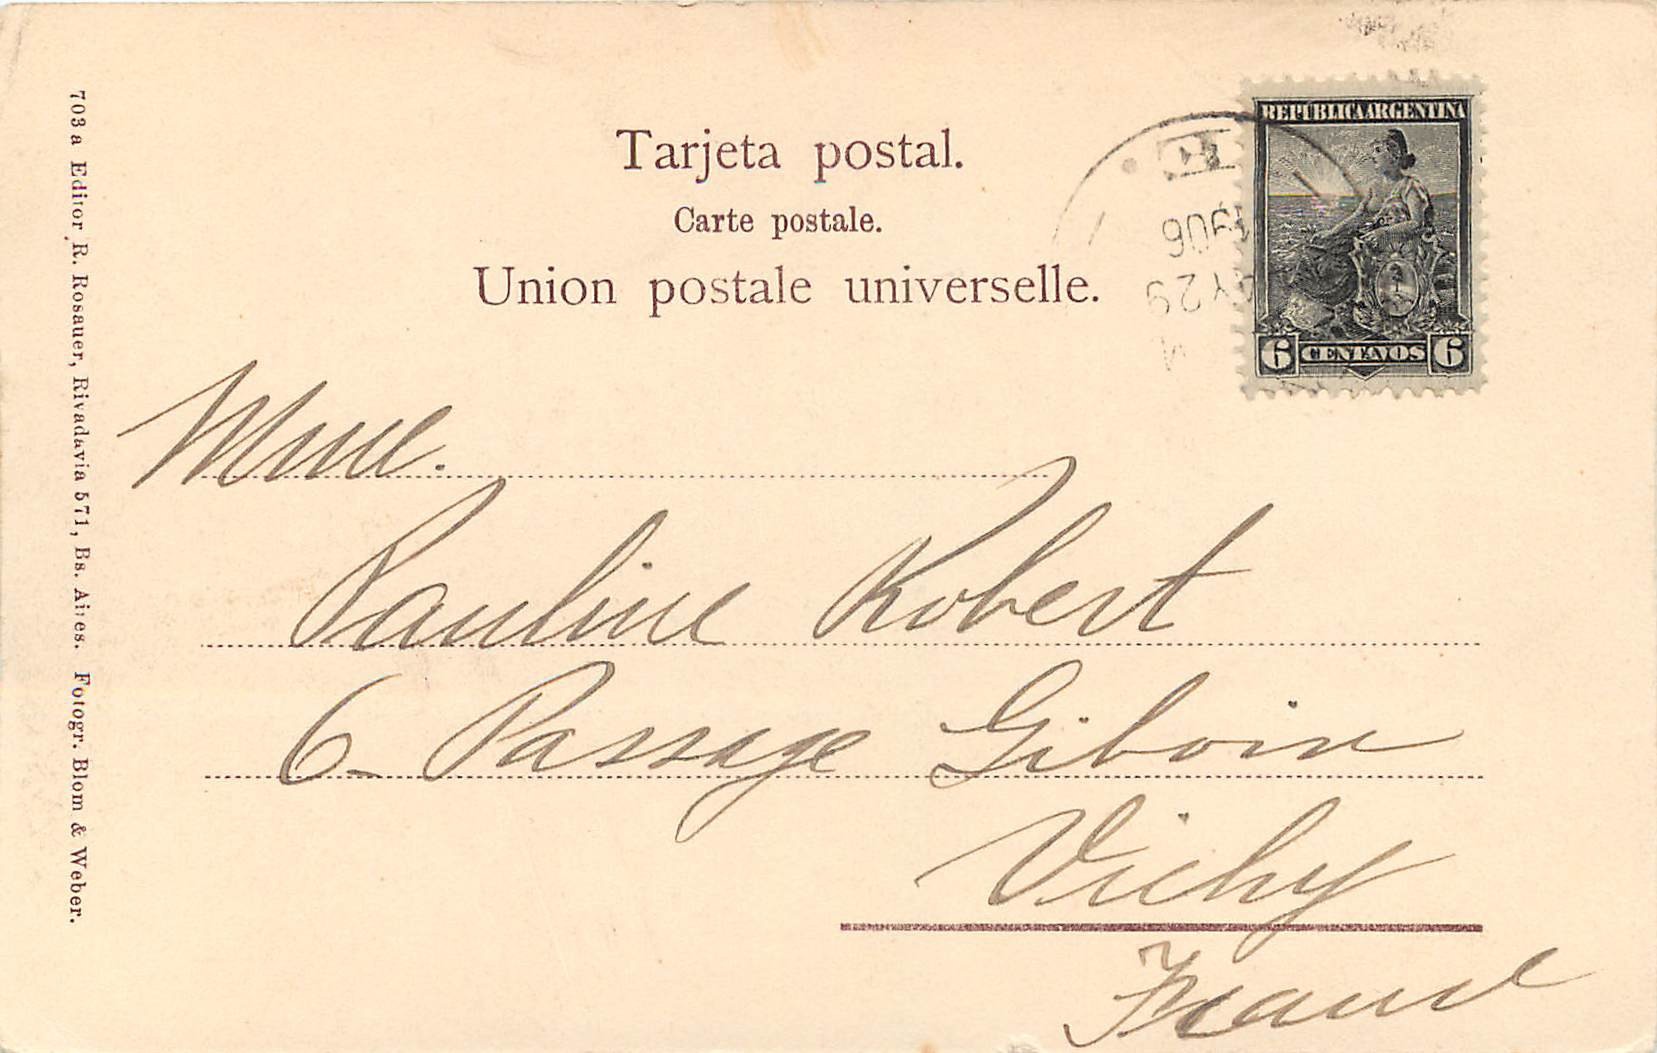 Tarjeta postal.
Carte postale.
Union postale universelle.
REPÚBLICA ARGENTINA
6 CENTAVOS 6
1906
29
Mme.
Pauline Robert
6 Passage Giboin
Vichy
France
703 a Editor R. Rosauer, Rivadavia 571, Bs. Aires. Fotogr. Blom & Weber.